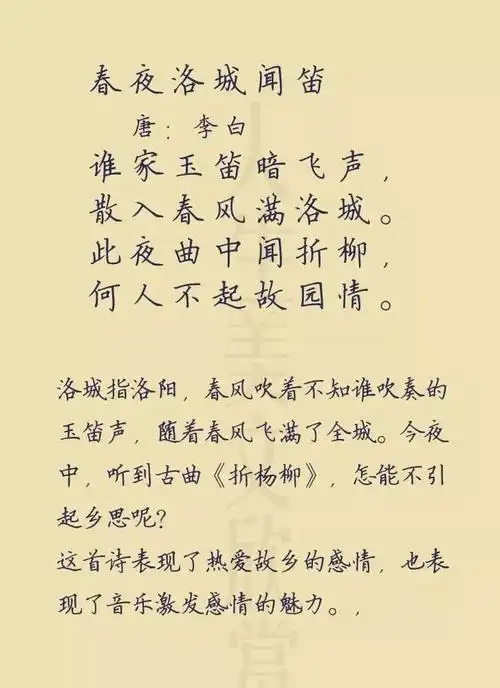 春夜洛城闻笛
唐：李白
谁家玉笛暗飞声，
散入春风满洛城。
此夜曲中闻折柳，
何人不起故园情。
洛城指洛阳，春风吹着不知谁吹奏的
玉笛声，随着春风飞满了全城。今夜
中，听到古曲《折杨柳》，怎能不引
起乡思呢？
这首诗表现了热爱故乡的感情，也表
现了音乐激发感情的魅力。，